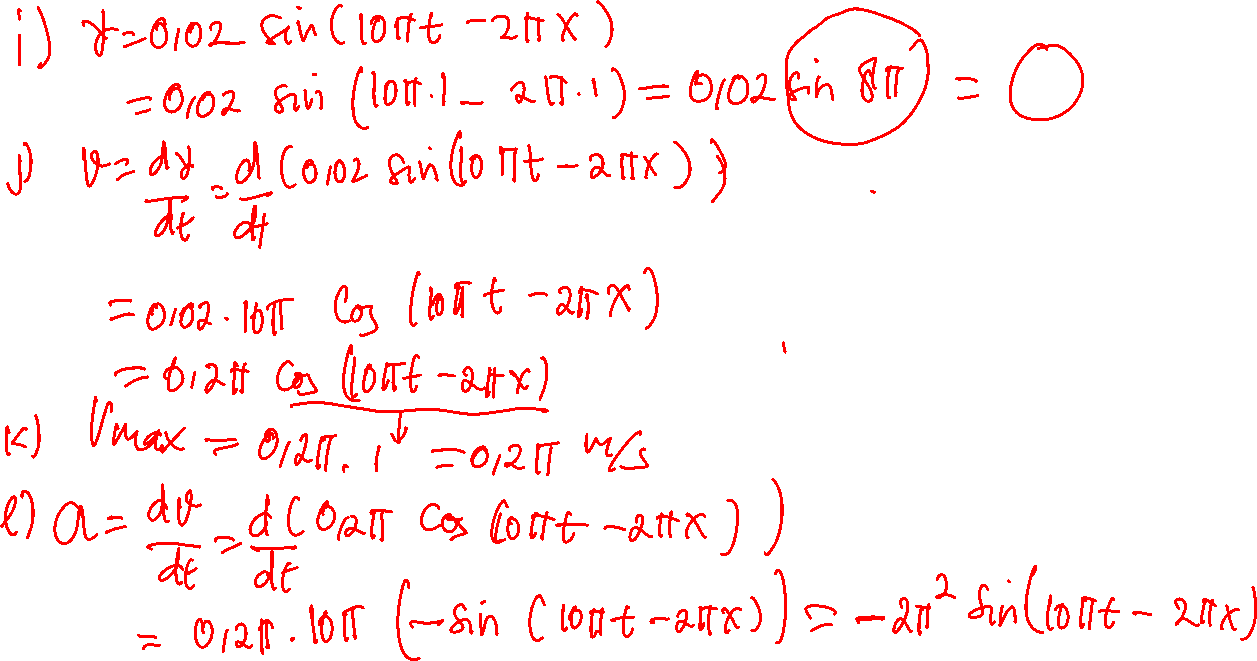 i) y = 0,02 sin (10πt - 2πx)
= 0,02 sin (10π.1 - 2π.1) = 0,02 sin 8π = 0
j) v = dy/dt = d/dt (0,02 sin (10πt - 2πx))
= 0,02 . 10π cos (10πt - 2πx)
= 0,2π cos (10πt - 2πx)
k) Vmax = 0,2π . 1 = 0,2π m/s
l) a = dv/dt = d/dt (0,2π cos (10πt - 2πx))
= 0,2π . 10π (-sin (10πt - 2πx)) = -2π² sin (10πt - 2πx)